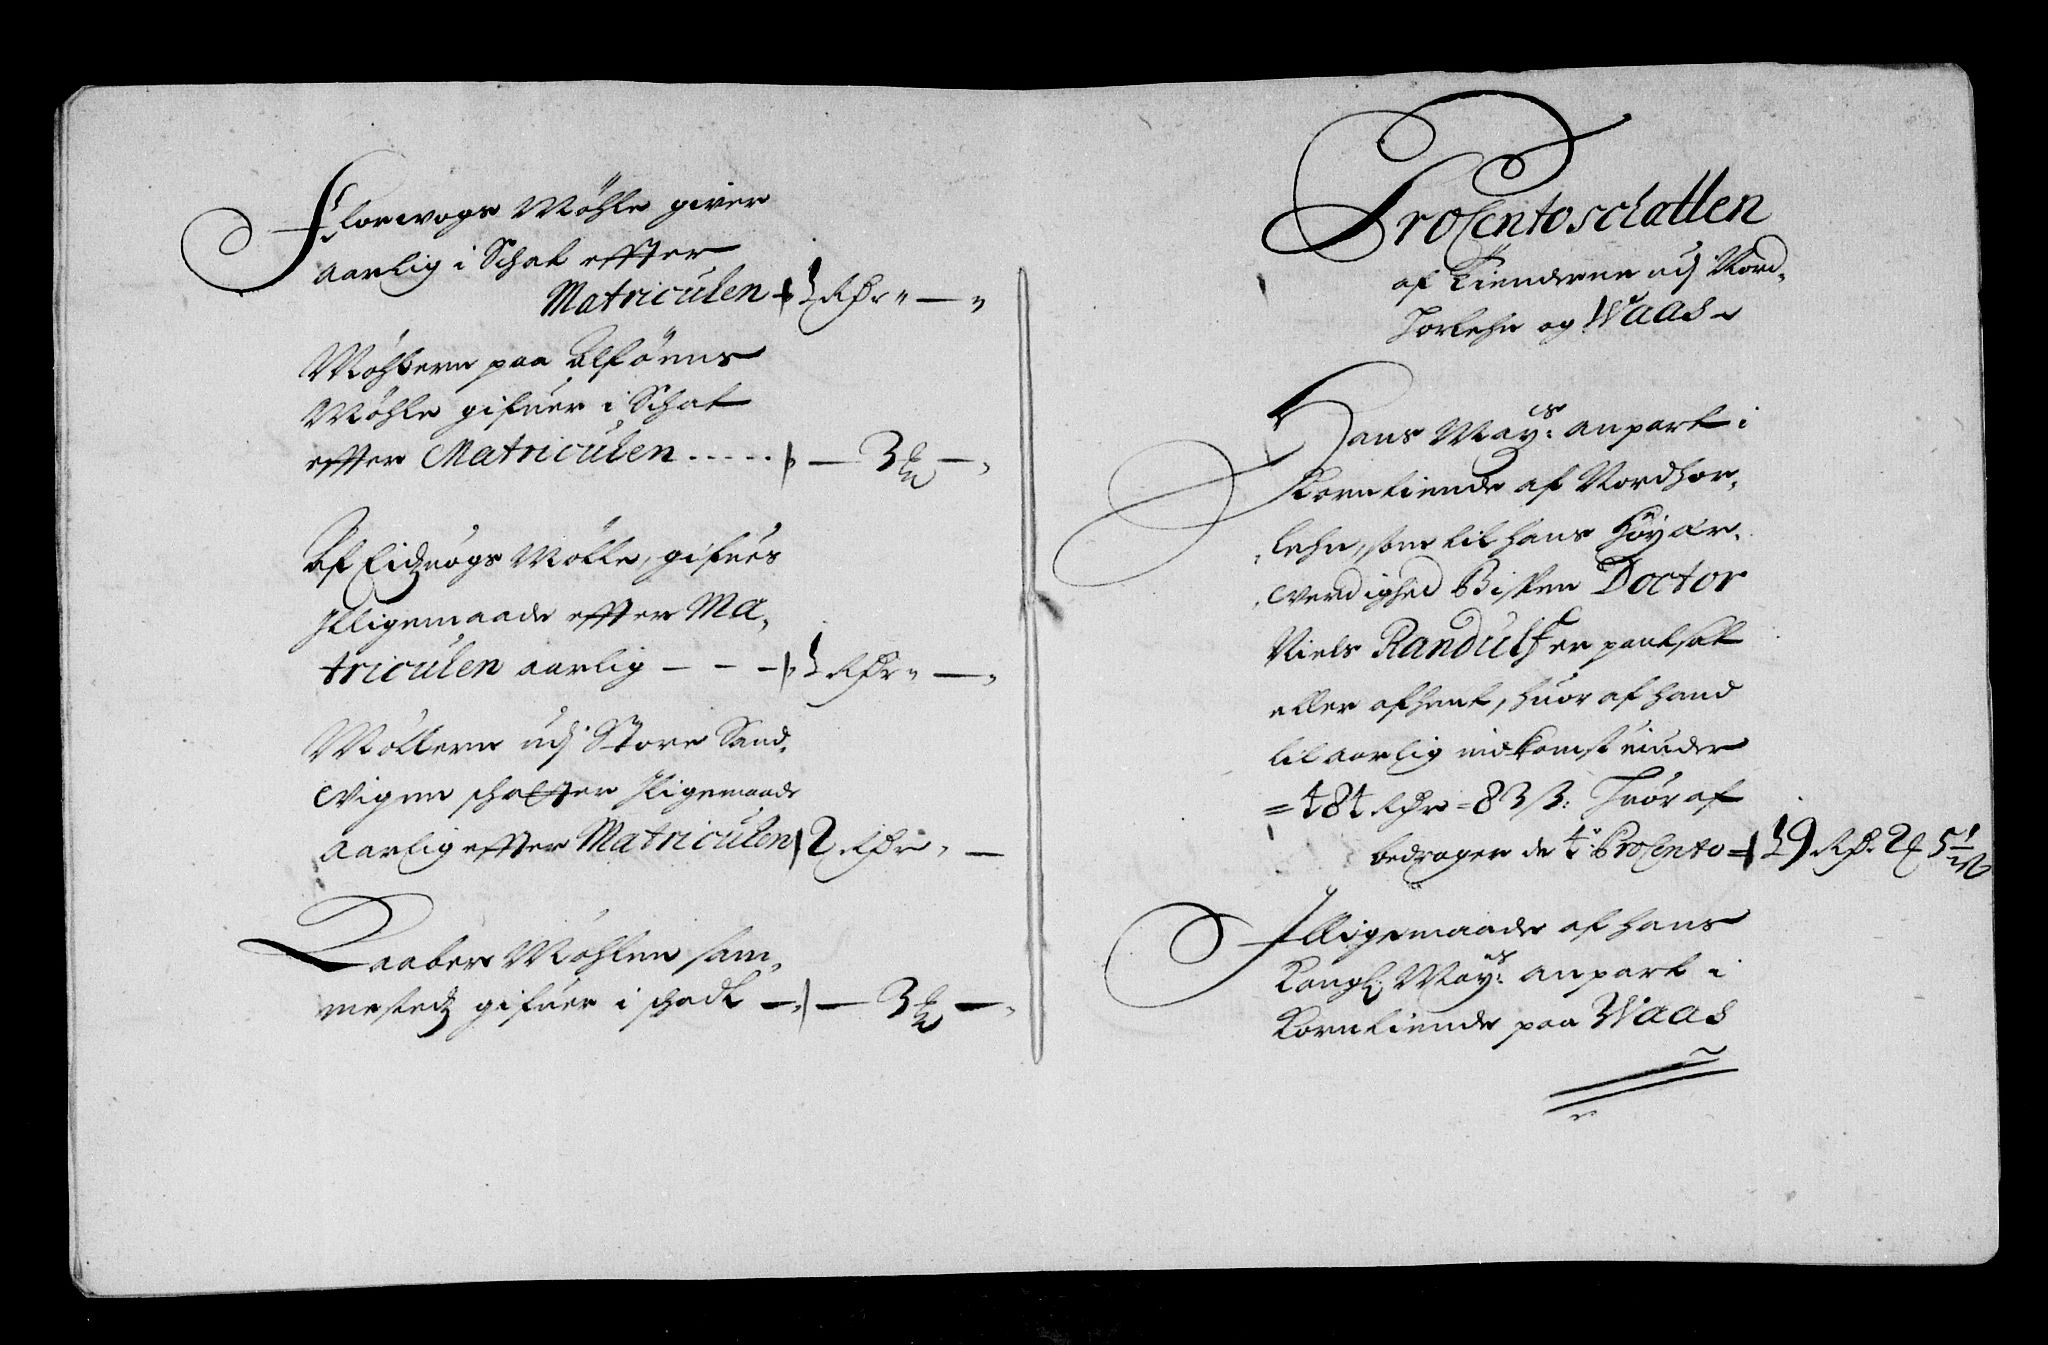 Florwogs Möhle giver
aarlig i Schat effter
Matriculen + 1 Rdr " — "
Möhlern paa Alföens
Möhle gifuer i Schat
effter Matriculen ..... — 3 —
Af Eidzuogs Mölle, gifues
Jlligemaade effter Ma,
triculen aarlig — — — 1 Rdr " — "
Möllern udj Store Sand,
vigen schatter Jligemaade
aarlig effter Matriculen 2 Rdr " —
Raabers Möhlen sam,
mestedz gifuer i schadt — — 3 —
Procentoschatten
af Tienderne udj Nord,
horlehn og Waas
Hans Mayts: anpart i
Korntiende af Nordhor,
lehn, som til hans Höyær,
verdighed Bispen Doctor
Niels Randulf er pantsatt
eller afhent, huor af hand
til aarlig indkomst niuder
= 484 Rdr = 83 ß: Huor af
bedrager de 4 Procento = 19 Rd. 2
Jlligemaade af hans
Kongl: Mayts: anpart i
Korntiende paa Waas